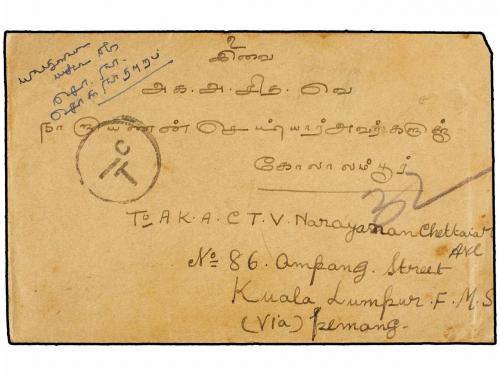 உ
சிவை
அக. அ. சித. வெ
நாராயணன் செட்டியார் அவர்களுக்கு
கோலாலம்பூர்
C
T
To A.K.A.C.T.V. Narayanan Chettaiar
Avl
No 86. Ampang. Street
Kuala Lumpur. F.M.S
(Via) Penang.